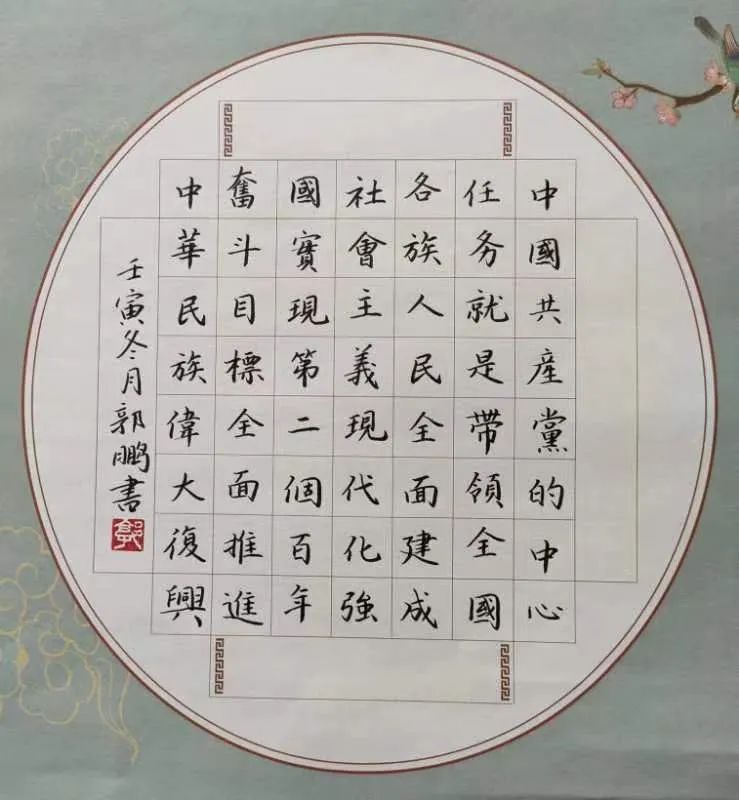 中國共産黨的中心
任务就是帶領全國
各族人民全面建成
社會主義現代化強
國實現第二個百年
奮斗目標全面推進
中華民族偉大復興
壬寅冬月郭鵬書
郭